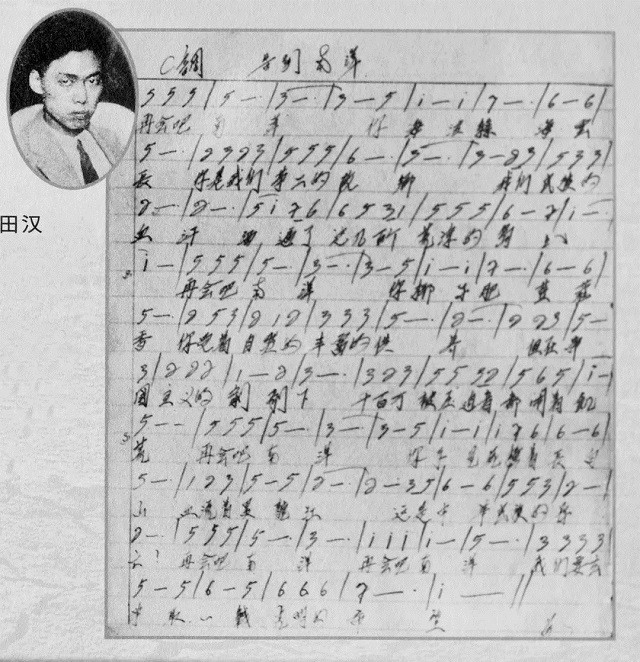 田汉
C调 告别南洋
5 5 5 | 5 — · | 3 — · | 3 — 5 | i — i | 7 — · | 6 — 6 |
再会吧 南 洋 你 海 波 绿 海 云
5 — · | 2 3 2 3 | 5 5 5 | 6 — · | 5 — · | 3 — 2 3 | 5 3 3 |
长 你是我们第二的故 乡 我们 民族的
2 — · | 2 — · | 5 i 7 6 | 6 5 3 1 | 5 5 5 | 6 — 7 | i — ·
血 汗 洒 遍了 荒凉的
i — | 5 5 5 | 5 — | 3 — · | 3 — 5 | i — i | 7 — · | 6 — 6 |
再会吧 南 洋 你椰 子肥 豆 蔻
5 — · | 2 5 3 | 2 1 2 | 3 3 3 | 5 — · | 2 — · | 2 2 3 | 5 —
香 你受着 自然的 丰富的供 养 但在 帝
3 | 2 2 2 | 1 — 2 | 3 — · | 3 2 3 | 5 5 3 2 | 5 6 5 | i —
国 主义的 剥 削 下 千百万 被压迫者 都 闹着 饥
5 — — | 5 5 5 | 5 — · | 3 — · | 3 — 5 | i — i | i 7 6 | 6 — 6 |
荒 再会吧 南 洋 你不 见尸横着 长 白
5 — · | 1 2 3 | 5 — 5 | 2 — · | 2 — 3 5 | 6 — 6 | 5 5 3 | 2 —
山 血流着黑 龙江 这是中 华民族的存
2 — · | 5 5 5 | 5 — · | 3 — · | i i i | i — · | 5 — · | 3 3 3 3
亡! 再会吧 南 洋 再会吧 南 洋 我们要去
5 — 5 | 6 — 5 | 6 6 6 | 7 — · | i — — ||
争 取 一 线 光明的 希 望